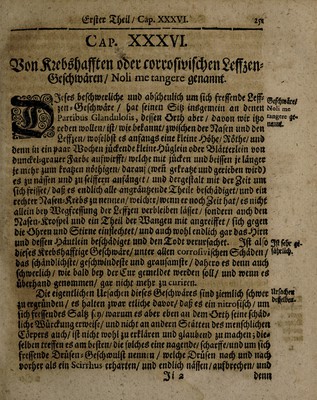 Erster Theil / Cap. XXXVI. 251
CAP. XXXVI.
Von Krebshafften oder corrosivischen Leffzen-
Geschwären / Noli me tangere genannt.
DIeses beschwerliche und abscheulich um sich fressende Leff-
zen-Geschwäre / hat seinen Sitz insgemein an denen
Partibus Glandulosis, dessen Orth aber / davon wir itzo
reden wollen ist / wie bekannt / zwischen der Nasen und den
Leffzen / woselbst es anfangs eine kleine Höhe / Röthe / und
denn in ein paar Wochen jückende kleine Hüglein oder Blätterlein von
dunckelgrauer Farbe aufwirfft / welche mit jücken und beissen je länger
je mehr zum kratzen nöthigen / darauf / wenn gekratzt und gerieben wird /
es zu nässen und zu seiffern anfängt / und dergestalt mit der Zeit um
sich frisset / daß es endlich alle angräntzende Theile beschädiget / und ein
rechter Nasen-Krebs zu nennen / welcher / wenn er noch Zeit hat / es nicht
allein bey Wegfressung der Leffzen verbleiben lässet / sondern auch den
Nasen-Knorpel und ein Theil der Wangen mit angreiffet / sich gegen
die Ohren und Stirne einflechtet / und auch wohl endlich gar das Hirn
und dessen Häutlein beschädiget und den Todt verursachet. Ist also
dieses Krebshafftige Geschwäre / unter allen corrosivischen Schäden /
das schändlichste / geschwindeste und grausamste / dahero es denn auch
schwerlich / wie bald bey der Cur gemeldet werden soll / und wenn es
überhand genommen / gar nicht mehr zu curiren.
Die eigentlichen Ursachen dieses Geschwäres sind ziemlich schwer
zu ergründen / es halten zwar etliche davor / daß es ein nitrosisch / um
sich fressendes Saltz sey / warum es aber eben an dem Orth seine schäd-
liche Würckung erweise / und nicht an andern Stätten des menschlichen
Cörpers auch / ist nicht wohl zu erklären und glaubend zu machen / die-
selben treffen es am besten / die solches eine nagende / scharffe / und um sich
fressende Drüsen-Geschwulst nennen / welche Drüsen nach und nach
vorher als ein Scirrhus erharten / und endlich näffen / aufbrechen / und
Ji 2 denn
Geschwäre /
Noli me
tangere ge-
nannt.
Ist sehr ge-
fährlich.
Ursachen
desselben.